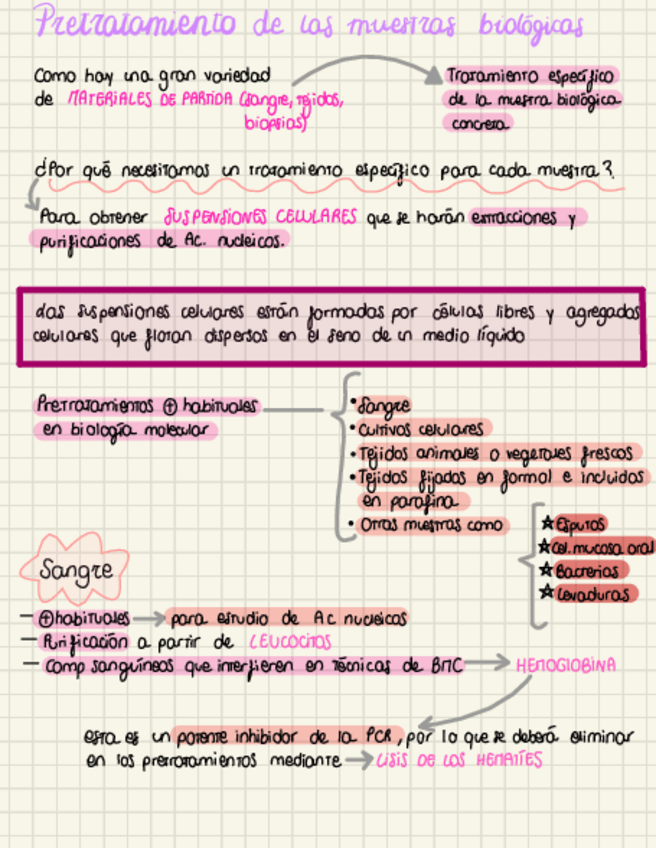 Pretratamiento de las muestras biológicas
Como hay una gran variedad
de MATERIALES DE PARTIDA (sangre, tejidos,
biopsias)
Tratamiento específico
de la muestra biológica
concreta
¿Por qué necesitamos un tratamiento específico para cada muestra?
Para obtener SUSPENSIONES CELULARES que se harán extracciones y
purificaciones de Ac. nucleicos.
Las suspensiones celulares están formadas por células libres y agregados
celulares que flotan dispersos en el seno de un medio líquido
Pretratamientos ⊕ habituales
en biología molecular
• Sangre
• Cultivos celulares
• Tejidos animales o vegetales frescos
• Tejidos fijados en formol e incluidos
en parafina
• Otras muestras como
☆ Esputos
☆ Cel. mucosa oral
☆ Bacterias
☆ Levaduras
Sangre
— ⊕ habituales → para estudio de Ac nucleicos
— Purificación a partir de LEUCOCITOS
— Comp sanguíneos que interfieren en Técnicas de BMC → HEMOGLOBINA
esta es un potente inhibidor de la PCR, por lo que se deberá eliminar
en los pretratamientos mediante → LISIS DE LOS HEMATÍES